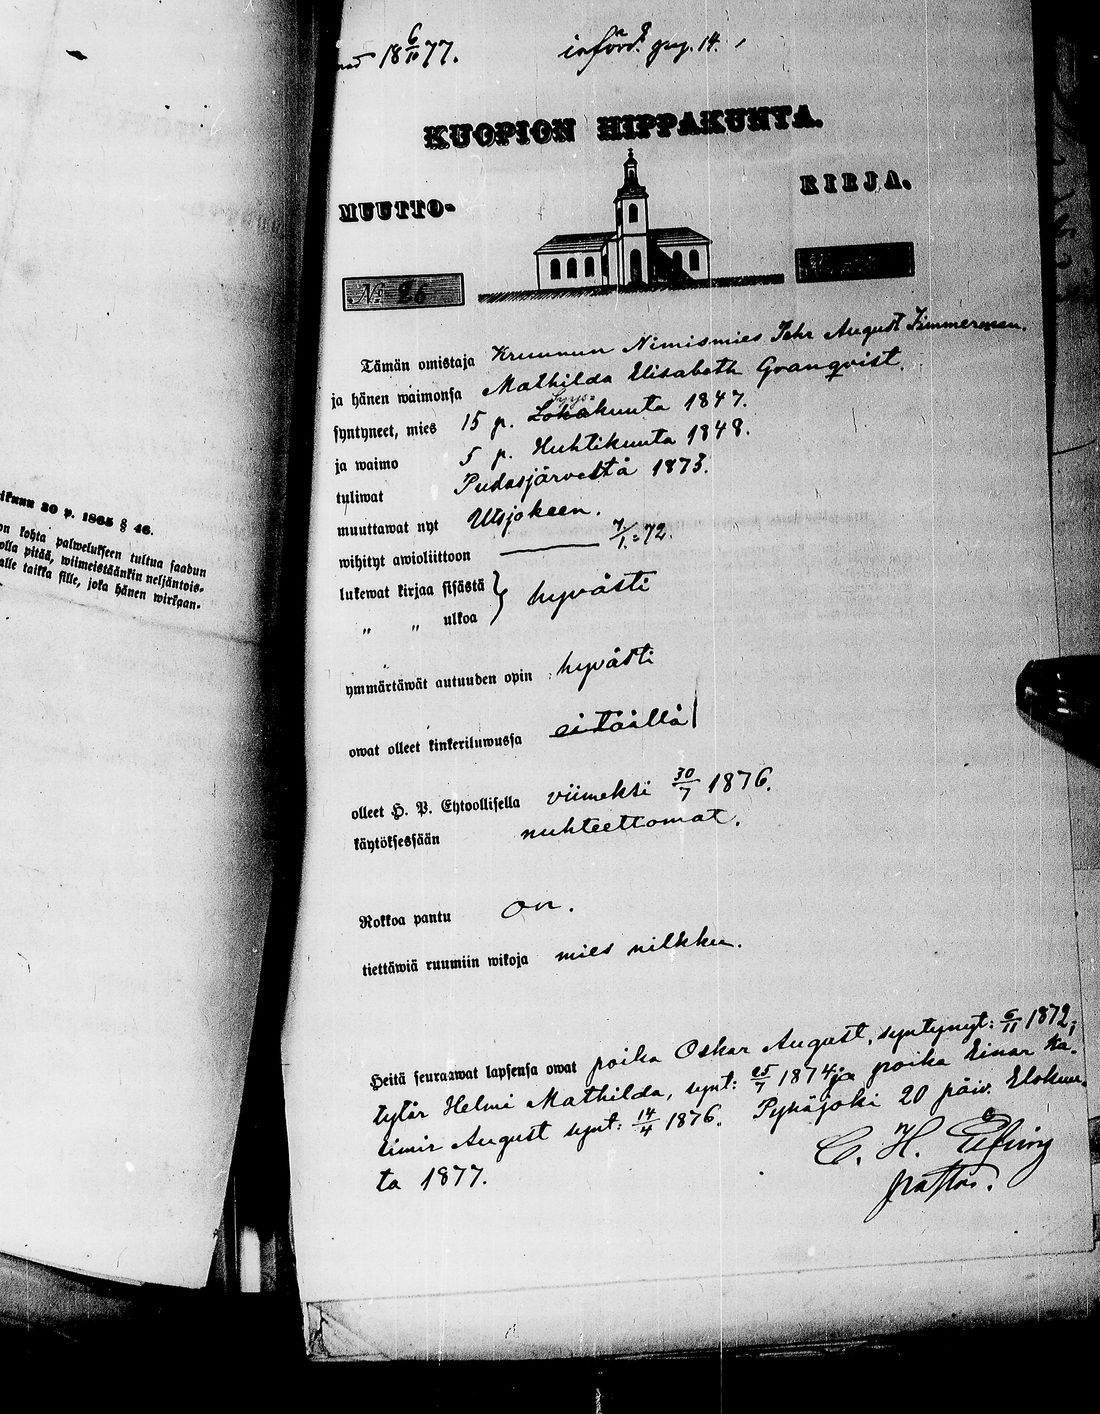 18 6/10 77.
införd. pag. 14.
KUOPION HIPPAKUNTA.
MUUTTO-
KIRJA.
No 26
Tämän omistaja Kruunun Nimismies Johr August Zimmerman.
ja hänen waimonsa Mathilda Elisabeth Granqvist.
Syys-
syntyneet, mies 15 p. Lokakuuta 1847.
ja waimo 5 p. Huhtikuuta 1848.
tuliwat Pudasjärveltä 1873.
muuttawat nyt Utsjokeen.
wihityt awioliittoon 7/1. 72.
lukewat kirjaa sisästä } hyvästi
„ „ ulkoa
ymmärtäwät autuuden opin hyvästi
owat olleet kinkeriluwussa ei täällä
olleet H. P. Ehtoollisella viimeksi 30/7 1876.
käytöksessään nuhteettomat.
Rokkoa pantu on.
tiettäwiä ruumiin wikoja mies nilkku.
Heitä seuraawat lapsensa owat poika Oskar August, syntynyt: 6/11 1872;
tytär Helmi Mathilda, synt: 25/7 1874; ja poika Einar Ka-
simir August synt: 14/4 1876. Pyhäjoki 20 päiv. Elokuu-
ta 1877.
C. H.
pastor.
ikuun 30 p. 1865 § 46.
on kohta palwelukseen tultua saadun
olla pitää, wiimeistäänkin neljäntois-
alle taikka sille, joka hänen wirkaan-